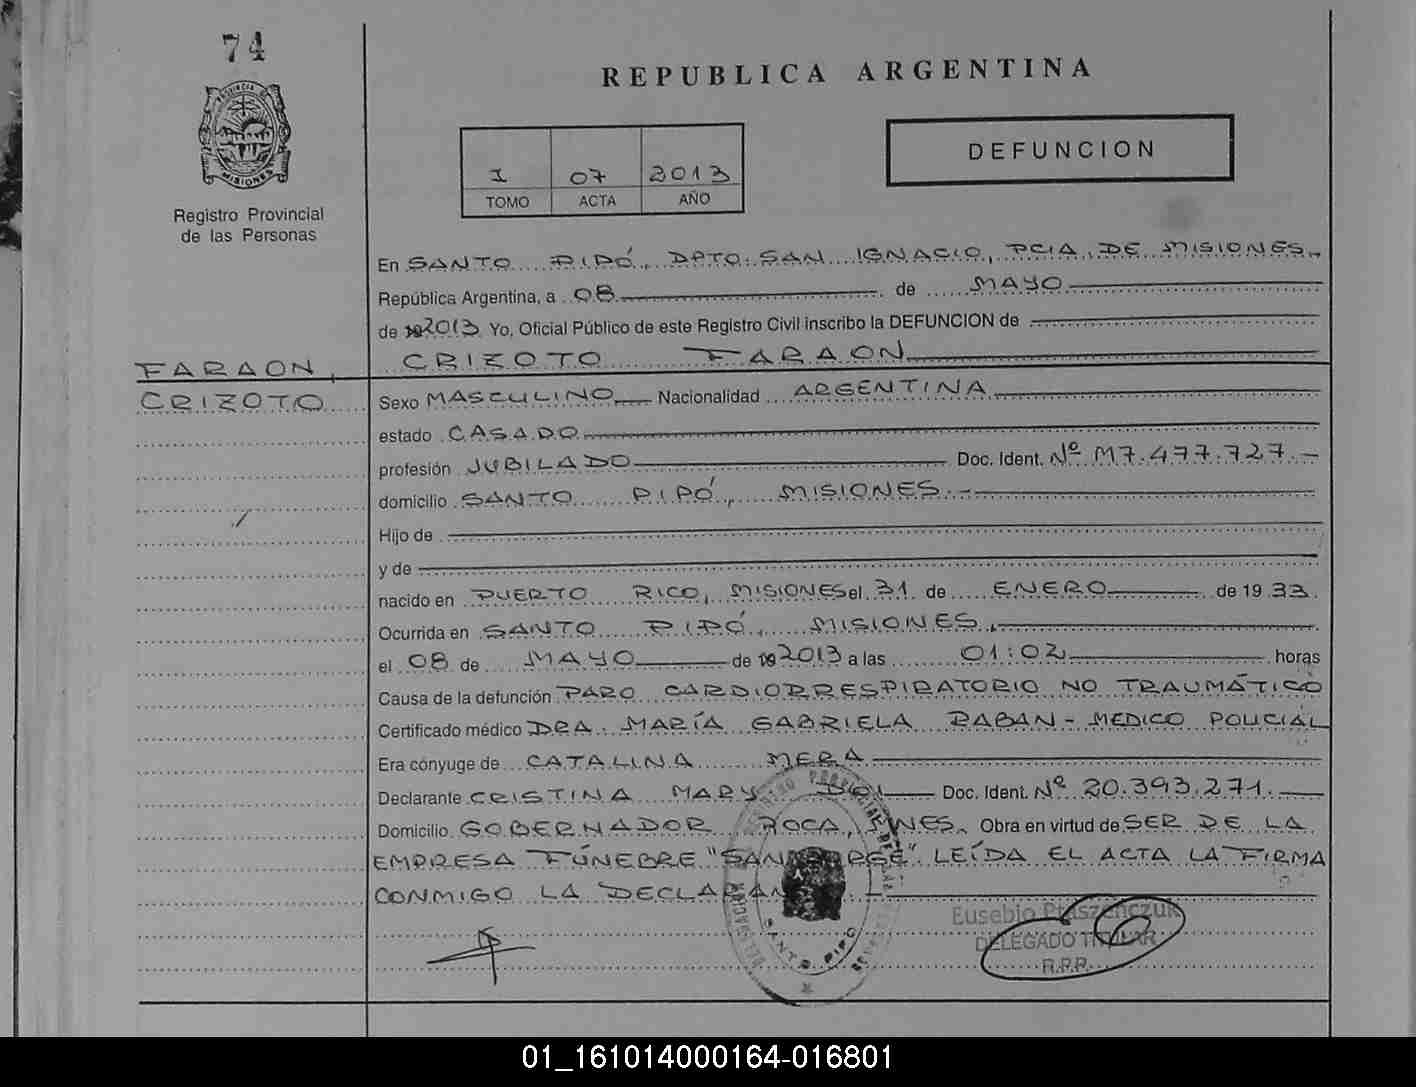 74
PROVINCIA DE
MISIONES
Registro Provincial
de las Personas
REPUBLICA ARGENTINA
I 07 2013
TOMO ACTA AÑO
DEFUNCION
En SANTO PIPÓ, DPTO. SAN IGNACIO, PCIA. DE MISIONES,
República Argentina, a 08 de MAYO
de 2013 Yo, Oficial Público de este Registro Civil inscribo la DEFUNCION de
CRIZOTO FARAON
FARAON,
CRIZOTO
Sexo MASCULINO Nacionalidad ARGENTINA
estado CASADO
profesión JUBILADO Doc. Ident. Nº M7.477.727.-
domicilio SANTO PIPÓ, MISIONES.-
Hijo de
y de
nacido en PUERTO RICO, MISIONES el 31 de ENERO de 19 33.
Ocurrida en SANTO PIPÓ, MISIONES,
el 08 de MAYO de 2013 a las 01:02 horas
Causa de la defunción PARO CARDIORRESPIRATORIO NO TRAUMÁTICO
Certificado médico DRA. MARÍA GABRIELA RABAN - MEDICO POLICIAL
Era cónyuge de CATALINA MERA
Declarante CRISTINA MARY Doc. Ident. Nº 20.393.271.
Domicilio GOBERNADOR ROCA, Obra en virtud de SER DE LA
EMPRESA FÚNEBRE "SAN JORGE". LEÍDA EL ACTA LA FIRMA
CONMIGO LA
SANTO PIPO
Eusebio Ptaszenczuk
DELEGADO TITULAR
R.P.P.
01_161014000164-016801